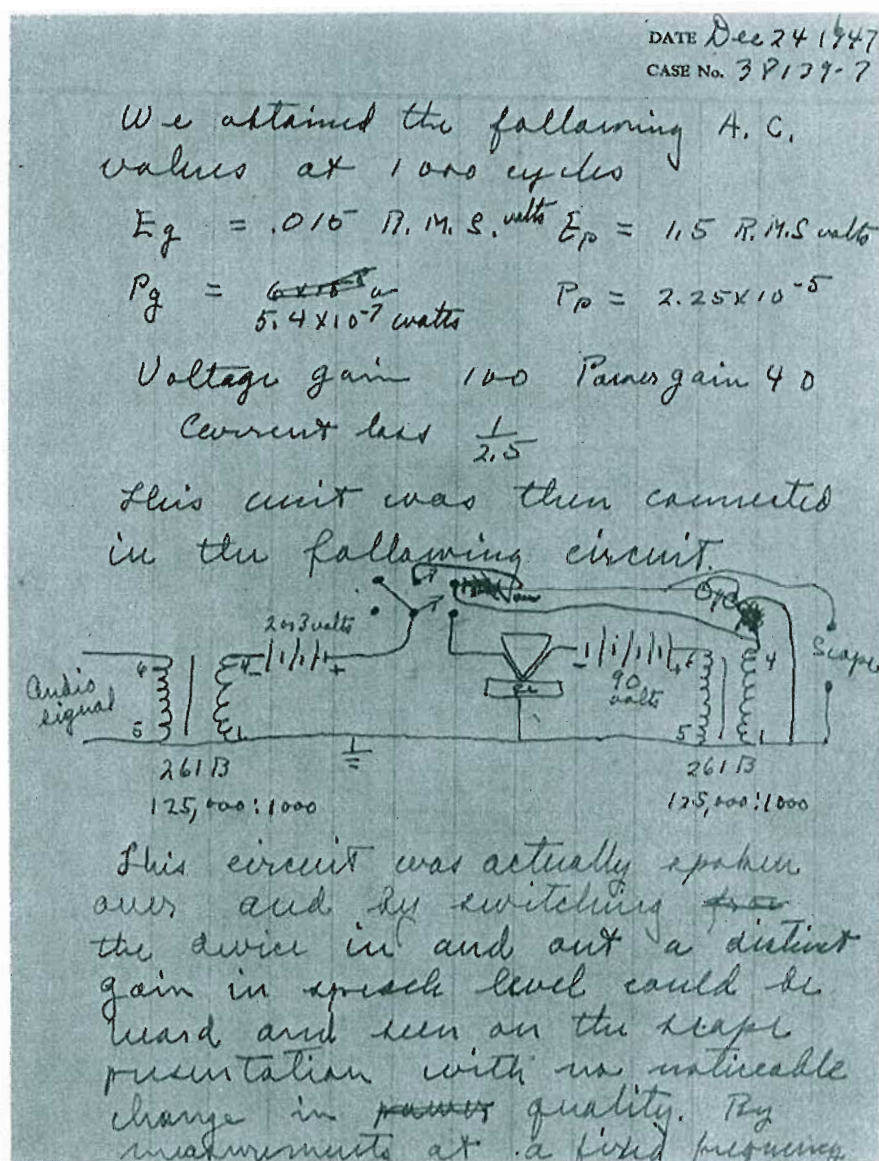 DATE Dec 24 1947
CASE No. 38139-7
We obtained the following A. C.
values at 1000 cycles
Eg = .015 R. M. S. volts Ep = 1.5 R.M.S volts
Pg =
5.4 x 10⁻⁷ watts Pp = 2.25 x 10⁻⁵
Voltage gain 100 Power gain 40
Current loss 1/2.5
This unit was then connected
in the following circuit.
2 or 3 volts
Audio
signal
6
5
4
1
- +
- +
90
volts
6
5
4
1
Scope
261B
125,000:1000
261B
125,000:1000
This circuit was actually spoken
over and by switching
the device in and out a distinct
gain in speech level could be
heard and seen on the scope
presentation with no noticeable
change in quality. By
measurements at a fixed frequency